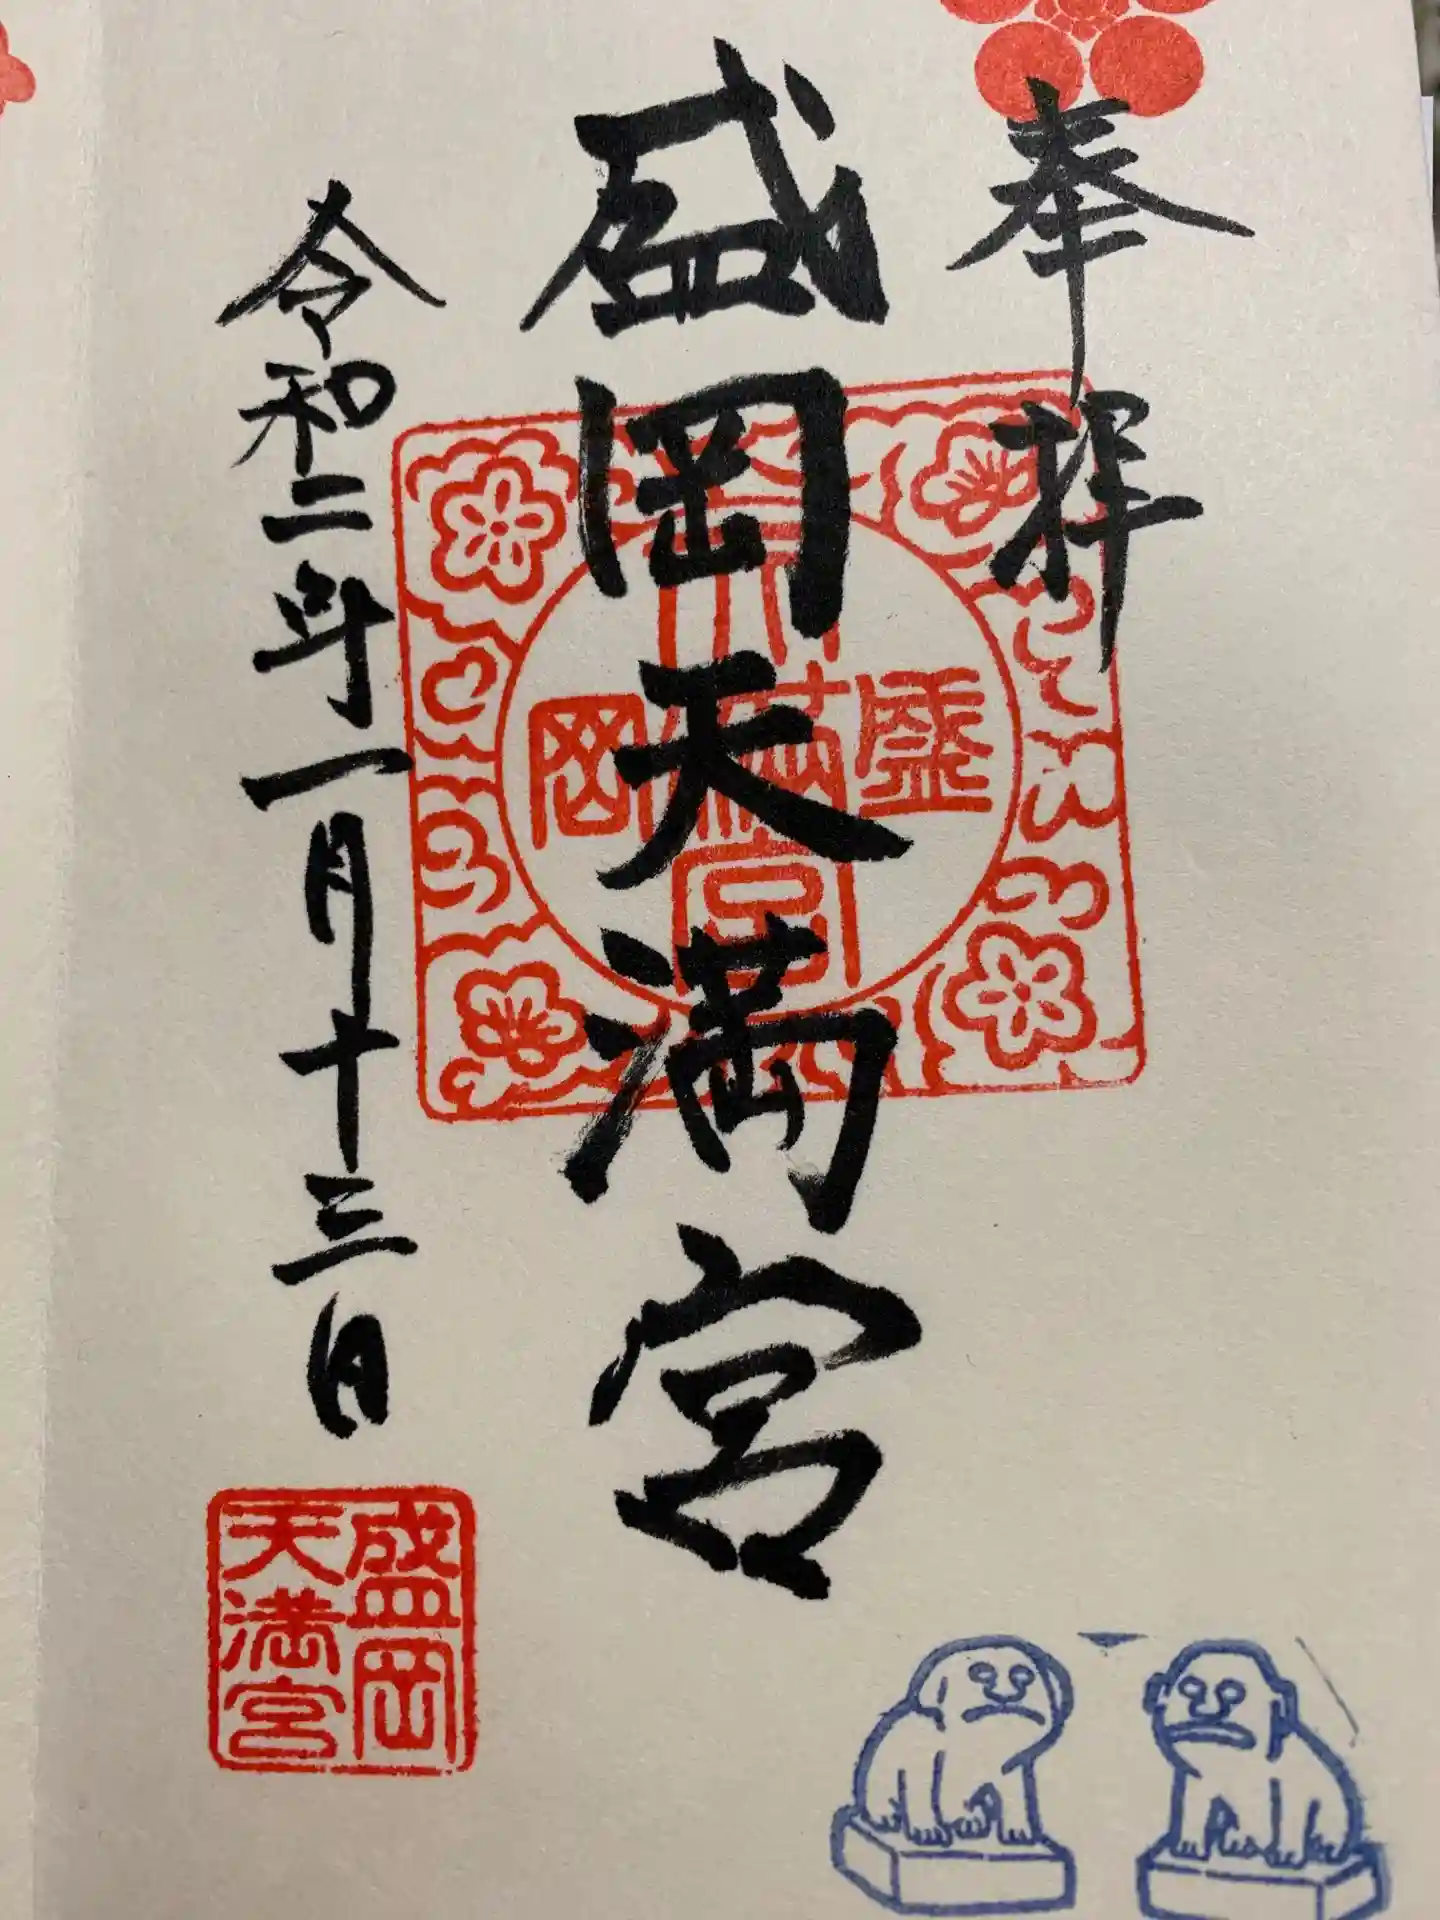 奉拝
盛岡天満宮
盛岡
天満宮
令和二年一月十三日
盛岡
天満宮